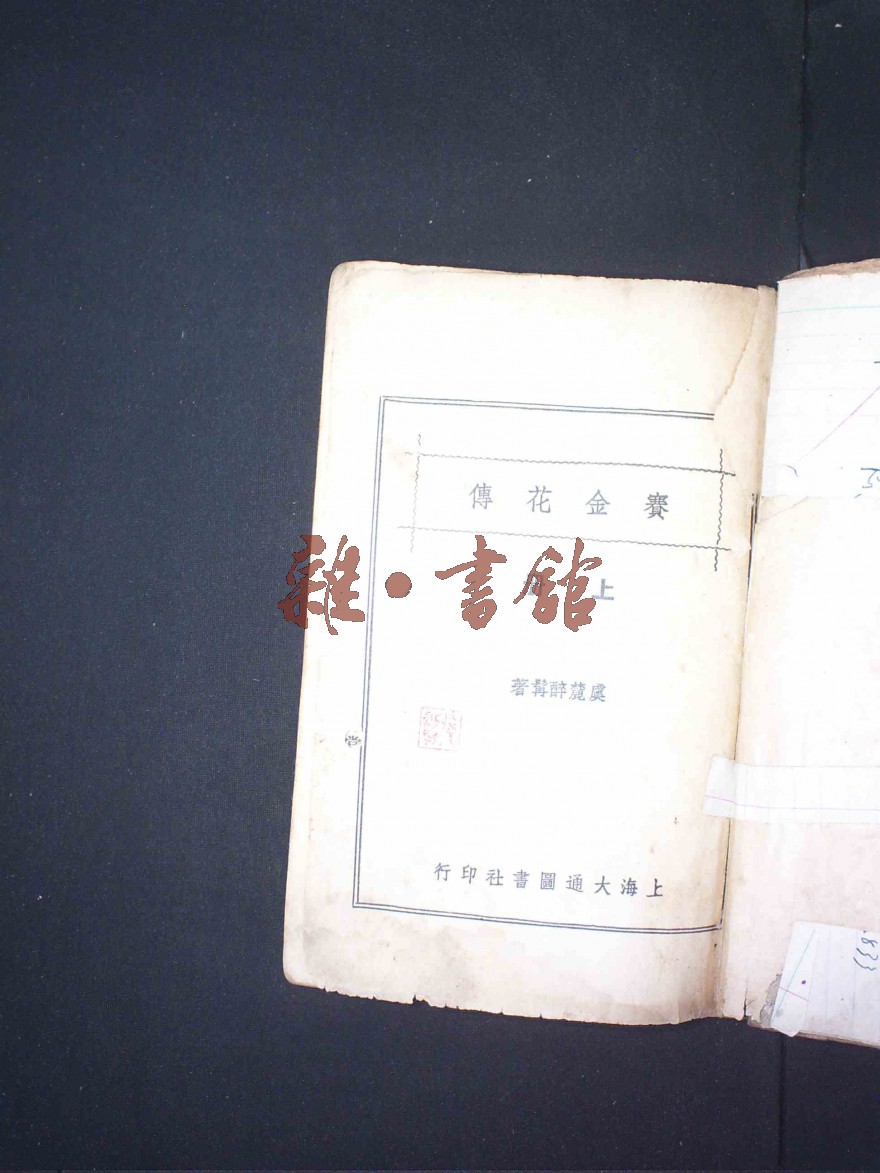 賽金花傳
上
虞麓醉髯著
上海大通圖書社印行
雜·書館